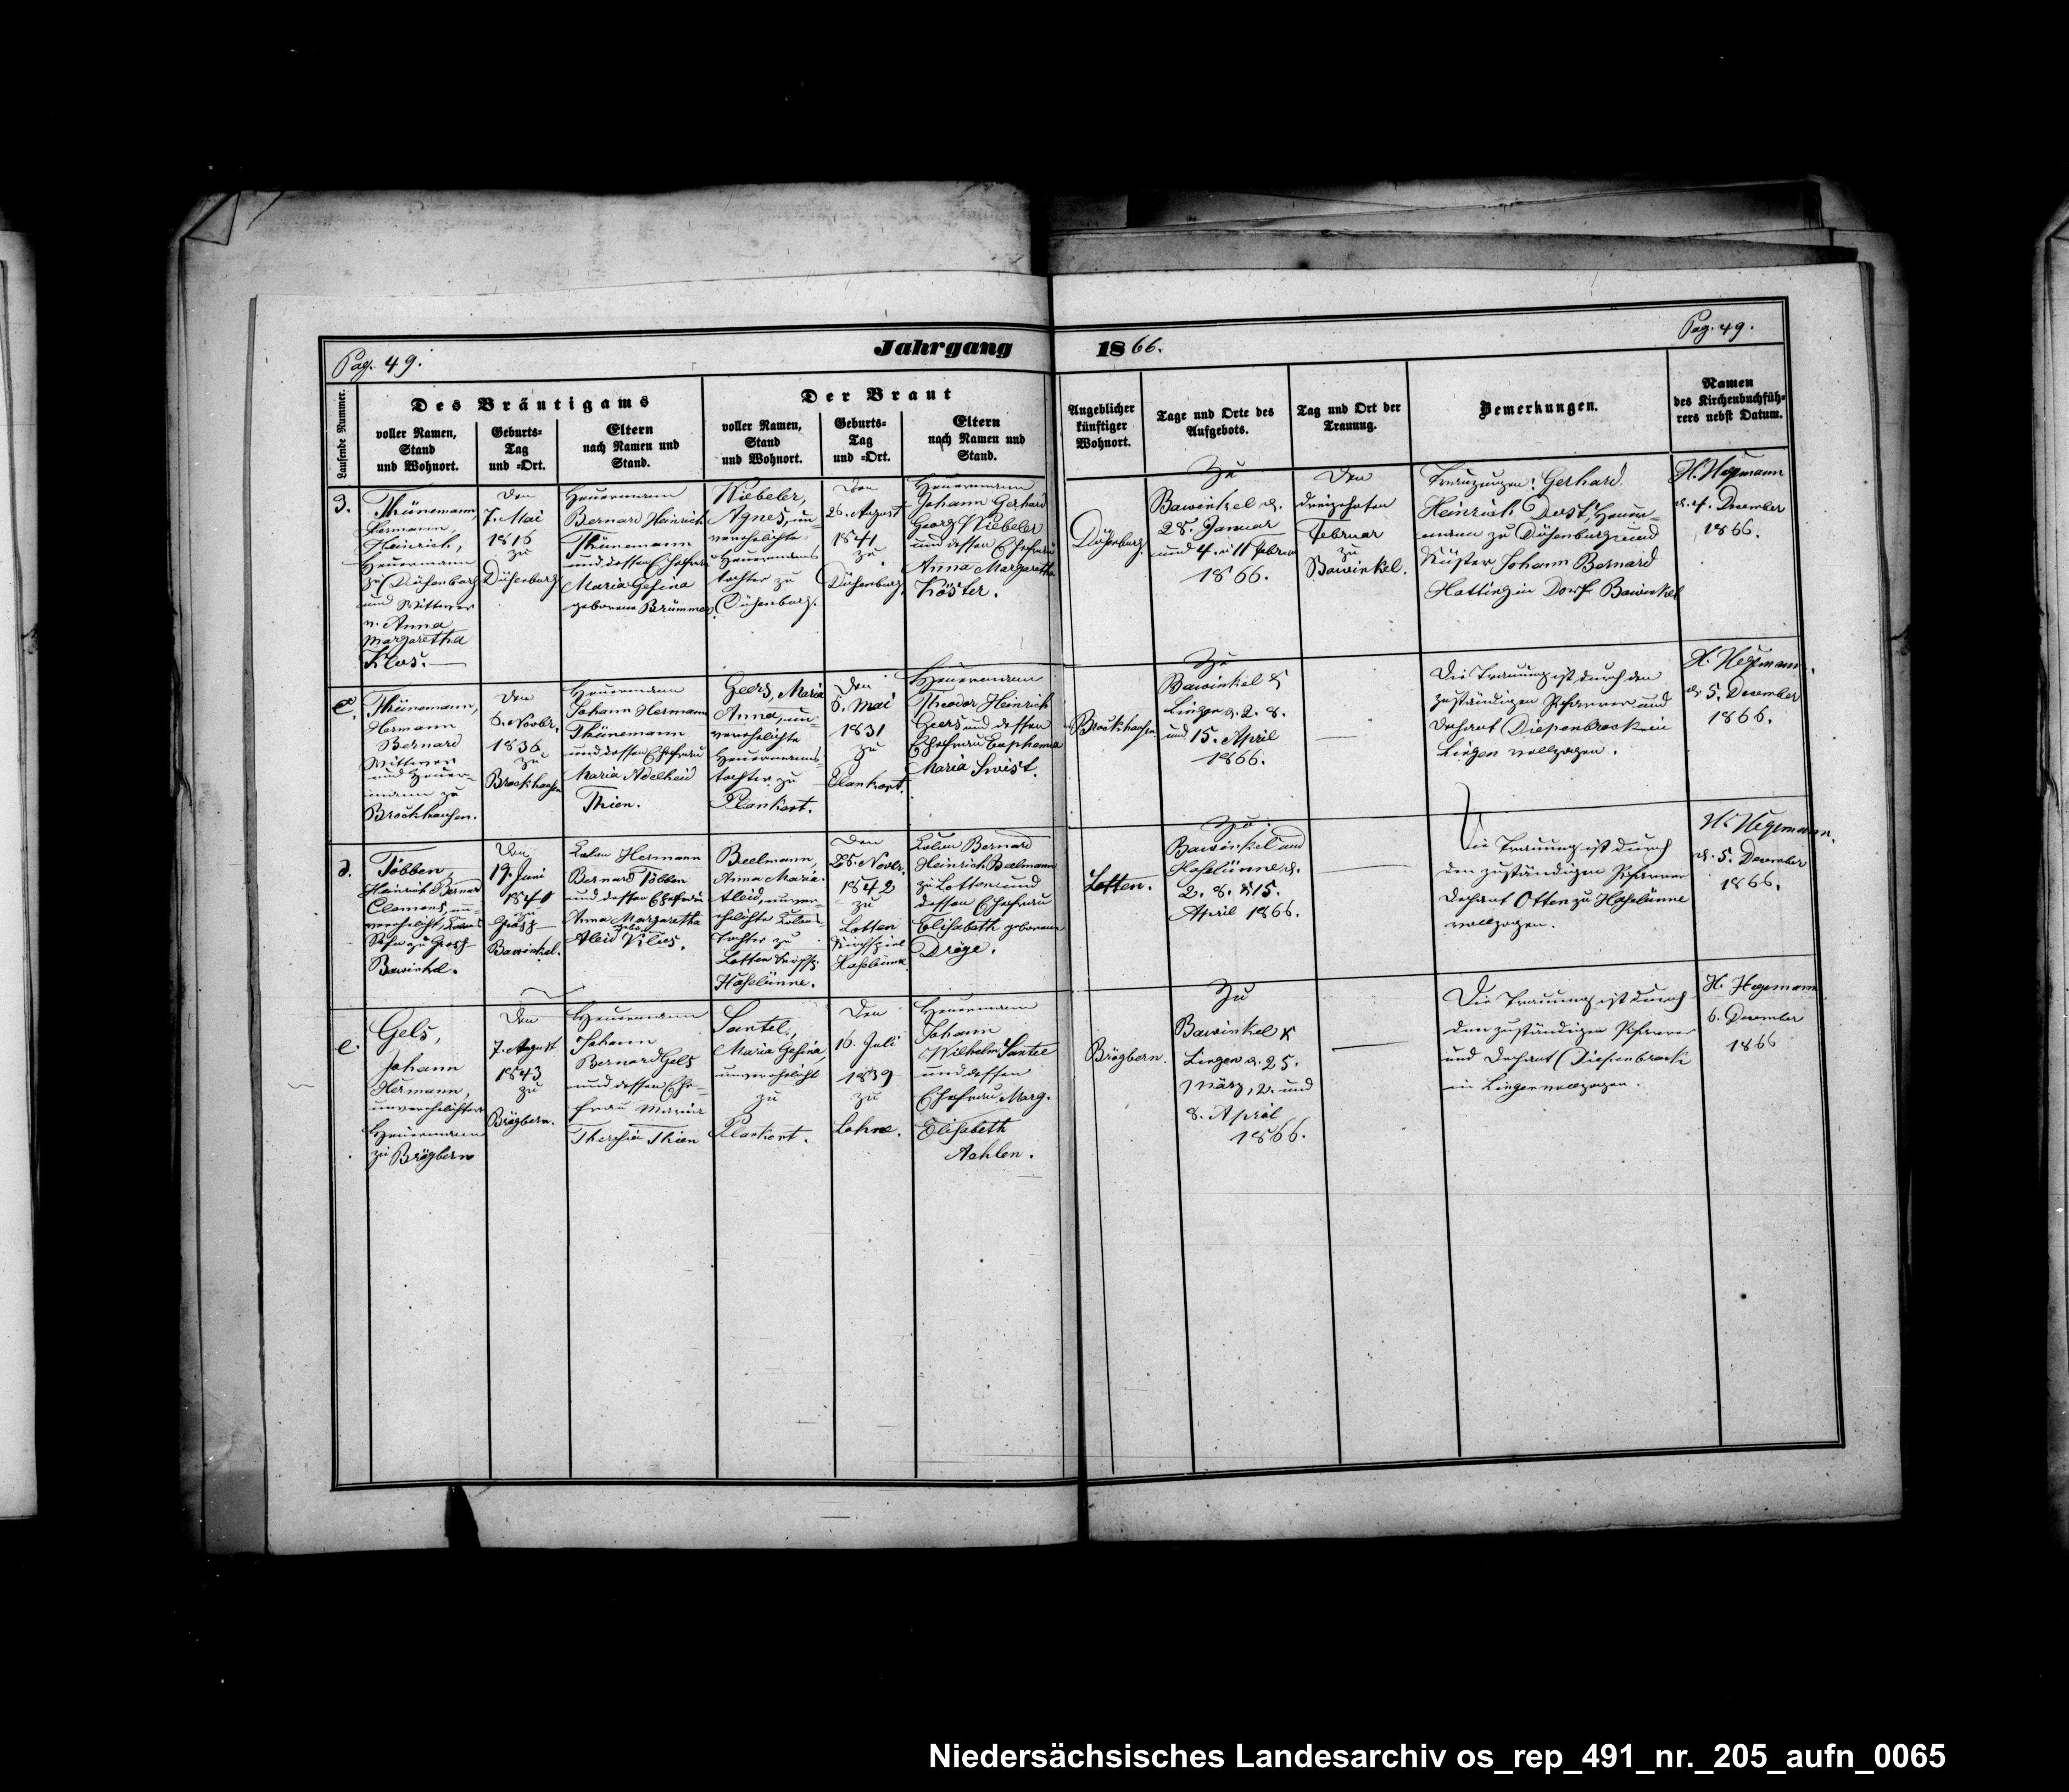 Pag. 49.
Jahrgang 1866.
Pag. 49.
Laufende Nummer.
Des Bräutigams
voller Namen,
Stand
und Wohnort.
Geburts-
Tag
und -Ort.
Eltern
nach Namen und
Stand.
Der Braut
voller Namen,
Stand
und Wohnort.
Geburts-
Tag
und -Ort.
Eltern
nach Namen und
Stand.
Angeblicher
künftiger
Wohnort.
Tage und Orte des
Aufgebots.
Tag und Ort der
Trauung.
Bemerkungen.
Namen
des Kirchenbuchfüh-
rers nebst Datum.
3.
Thünemann,
Hermann,
Heinrich,
Heuermann
zu Duhenburg
und Wittwer
v. Anna
Margaretha
Klas.
Den
7. Mai
1816
zu
Duhenburg
Heuermann
Bernard Heinrich
Thünemann
und dessen Ehefrau
Maria Gesina
geborene Brümmer
Wiebeler,
Agnes, un-
verehelichte
Heuermanns
tochter zu
Duhenburg.
Den
26. August
1841
zu
Duhenburg.
Heuermann
Johann Gerhard
Georg Wiebeler
und dessen Ehefrau
Anna Margaretha
Köster.
Duhenburg.
Zu
Bawinkel d.
28. Januar
und 4. u 11 Februar
1866.
Den
dreizehnten
Februar
zu
Bawinkel.
Trauzeugen: Gerhard
Heinrich Dust, Heuer-
mann zu Duhenburg und
Küster Johann Bernard
Hatting in Dorf Bawinkel
H. Hegemann
d. 4. December
1866.
c.
Thünemann,
Hermann
Bernard
Wittwer
und Heuer-
mann zu
Brockhausen.
Den
6. Novbr.
1836
zu
Brockhausen
Heuermann
Johann Hermann
Thünemann
und dessen Ehefrau
Maria Adelheid
Thien.
Geers, Maria
Anna, un-
verehelichte
Heuermanns-
tochter zu
Plankort.
Den
6. Mai
1831
zu
Plankort.
Heuermann
Theodor Heinrich
Geers und dessen
Ehefrau Euphemia
Maria Swist.
Brockhausen
Zu
Bawinkel &
Lingen d. 2. 8.
und 15. April
1866.
Die Trauung ist durch den
zuständigen Pfarrer und
Dechant Diepenbrock in
Lingen vollzogen.
H. Hegemann.
d. 5. December
1866.
d.
Többen,
Heinrich Bernard
Clemens, un-
verehelicht, Colons
Sohn zu Groß-
Bawinkel.
Den
19. Juni
1840
zu
Groß-
Bawinkel.
Colon Hermann
Bernard Többen
und dessen Ehefrau
Anna Margaretha
Aleid geb. Klus.
Beelmann,
Anna Maria
Aleid, unver-
ehelichte Colons
Tochter zu
Lotten Kirchsp.
Haselünne.
Den
28. Novbr.
1842
zu
Lotten
Kirchspiel
Haselünne.
Colon Bernard
Heinrich Beelmann
zu Lotten und
dessen Ehefrau
Elisabeth geborene
Dröge.
Lotten.
Zu
Bawinkel und
Haselünne d.
2. 8. & 15.
April 1866.
Die Trauung ist durch
den zuständigen Pfarrer
Dechant Otten zu Haselünne
vollzogen.
H. Hegemann.
d. 5. December
1866.
e.
Gels,
Johann
Hermann,
unverehelichter
Heuermann
zu Brögbern
Den
7. August
1843
zu
Brögbern.
Heuermann
Johann
Bernard Gels
und dessen Ehe-
frau Maria
Theresia Thien
Santel,
Maria Gesina,
unverehelicht
zu
Plankort.
Den
16. Juli
1839
zu
Lohne.
Heuermann
Johann
Wilhelm Santel
und dessen
Ehefrau Marg.
Elisabeth
Aehlen.
Brögbern.
Zu
Bawinkel &
Lingen d. 25.
März, 2. und
8. April
1866.
Die Trauung ist durch
den zuständigen Pfarrer
und Dechant Diepenbrock
in Lingen vollzogen.
H. Hegemann
6. December
1866
Niedersächsisches Landesarchiv os_rep_491_nr._205_aufn_0065